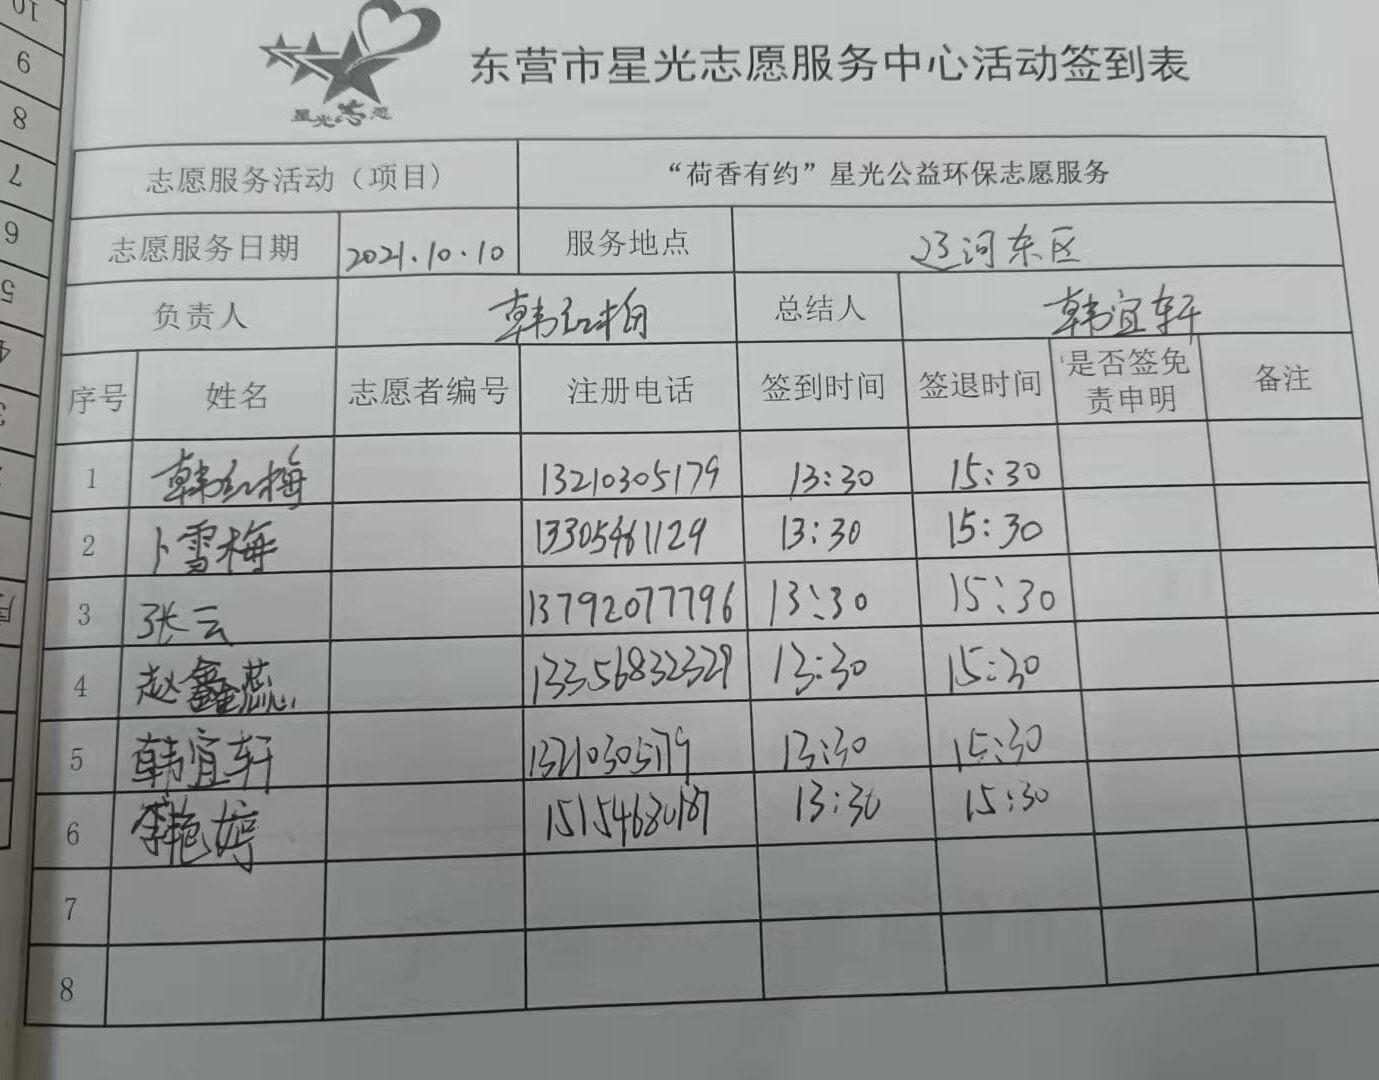 星光志愿
东营市星光志愿服务中心活动签到表
志愿服务活动（项目） “荷香有约”星光公益环保志愿服务
志愿服务日期 2021.10.10 服务地点 辽河东区
负责人 韩红梅 总结人 韩宜轩
序号 姓名 志愿者编号 注册电话 签到时间 签退时间 是否签免责申明 备注
1 韩红梅 13210305179 13:30 15:30
2 卜雪梅 13305461129 13:30 15:30
3 张云 13792077796 13:30 15:30
4 赵鑫蕊 13356832329 13:30 15:30
5 韩宜轩 13210305179 13:30 15:30
6 李艳婷 15154680187 13:30 15:30
7
8
10
9
8
7
6
5
4
3